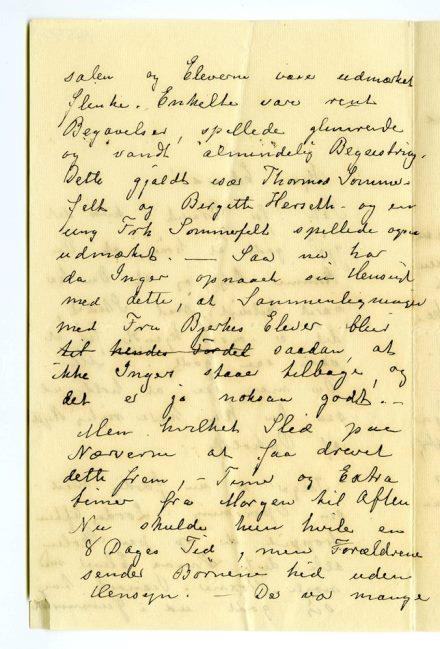 salen og Eleverne vare udmærket
flinke. Enkelte vare rent
Begavelser, spillede glimrende
og vandt almindelig Begeistring.
Dette gjaldt især Thormos Somme-
felt og Bergith Herseth - og en
ung Frk Sommerfelt spillede ogsaa
udmærket. — Saa nu har
da Inger opnaaet sin Hensigt
med dette, at Sammenligninger
med Fru Bjerkes Elever blir
til hendes Fordel saadan, at
ikke Inger staar tilbage, og
det er ja noksaa godt. —
Men hvilket Slid paa
Nerverne at faa drevet
dette frem, - Time og Extra
timer fra Morgen til Aften
Nu skulde hun hvile en
8 Dages Tid, men Forældrene
sender Børnene hid uden
Hensyn. — De var mange